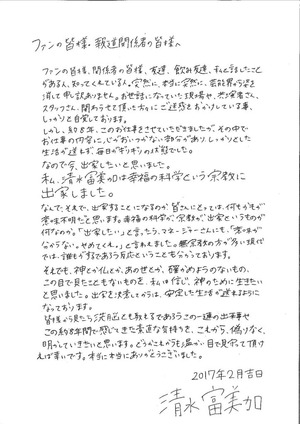 ファンの皆様・報道関係者の皆様へ
ファンの皆様、関係者の皆様、友達、飲み友達、私と話したこと
がある人、知ってくれている人。突然に、本当に突然に、芸能界から姿を
消して申し訳ありません。お世話になっていた現場や、共演者さん、
スタッフさん、関わらせて頂いた方々にご迷惑をおかけしている事、
しっかりと自覚しております。
しかし、約8年、このお仕事をさせていただきましたが、その中で
お仕事の内容に、心がおいつかない部分があり、しっかりとした
生活が送れず、毎日がギリギリの状態でした。
なので今、出家したいと思いました。
私、清水富美加は幸福の科学という宗教に
出家しました。
なんで、それで、出家することになるのが皆さんにとっては、何もかもが
意味不明だと思います。幸福の科学が、宗教が、出家というものが
何なのか。「出家したい」と言ったら、マネージャーさんにも、「意味が
分からない。やめてくれ。」と言われました。無宗教の方が多い現代
では、誰もがするであろう反応ということも分かっております。
それでも、神とか仏とか、あの世とか、確かめようのないもの、
この目で見たこともないものを、私は信じ、神のために生きたい
と思いました。出家を決意してからは、安定した生活が送れるように
なっております。
皆様から見たら洗脳とも取れるであろうこの一連の出来事や
この約8年間で感じてきた素直な気持ちを、これから、偽りなく、
明かしていきたいと思います。どうかこれからも温かい目で見守って頂け
れば幸いです。本当に本当にありがとうございました。
2017年2月吉日
清水富美加